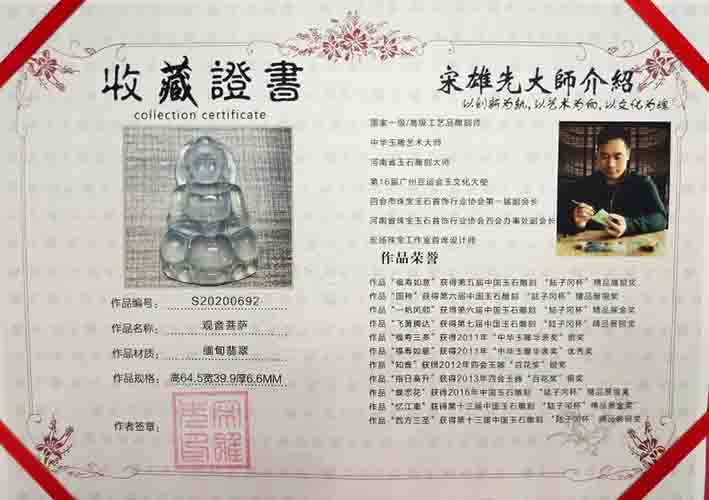 收藏證書
collection certificate
作品编号: S20200692
作品名称: 观音菩萨
作品材质: 缅甸翡翠
作品规格: 高64.5宽39.9厚6.6MM
作者签章:
宋雄先大師介紹
以创新为轨,以艺术为向,以文化为缘
国家一级/高级工艺品雕刻师
中华玉雕艺术大师
河南省玉石雕刻大师
第16届广州亚运会玉文化大使
四会市珠宝玉石首饰行业协会第一届副会长
河南省珠宝玉石首饰行业协会四会办事处副会长
宏扬珠宝工作室首席设计师
作品荣誉
作品“福寿如意”获得第五届中国玉石雕刻 “陆子冈杯”精品展银奖
作品“国粹”获得第六届中国玉石雕刻 “陆子冈杯”精品展银奖
作品“一帆风顺”获得第六届中国玉石雕刻 “陆子冈杯”精品展金奖
作品“飞黄腾达”获得第七届中国玉石雕刻 “陆子冈杯”精品展铜奖
作品“福寿三多”获得2011年“中华玉雕华表奖”银奖
作品“福寿如意”获得2011年“中华玉雕华表奖”优秀奖
作品“知音”获得2012年四会玉器“百花奖”银奖
作品“指日高升”获得2013年四会玉器“百花奖”铜奖
作品“蝶恋花”获得2016年中国玉石雕刻 “陆子冈杯”精品展银奖
作品“忆江南”获得第十三届中国玉石雕刻 “陆子冈杯”精品展金奖
作品“西方三圣”获得第十三届中国玉石雕刻 “陆子冈杯”精品展银奖